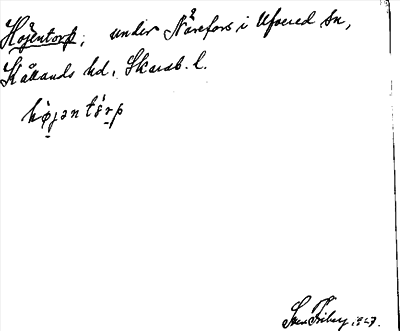 Höjentorp, under Nårefors i Ufvered sn,
Kållands hd, Skarab. l.
höjentorp
Sven Friberg 1927.